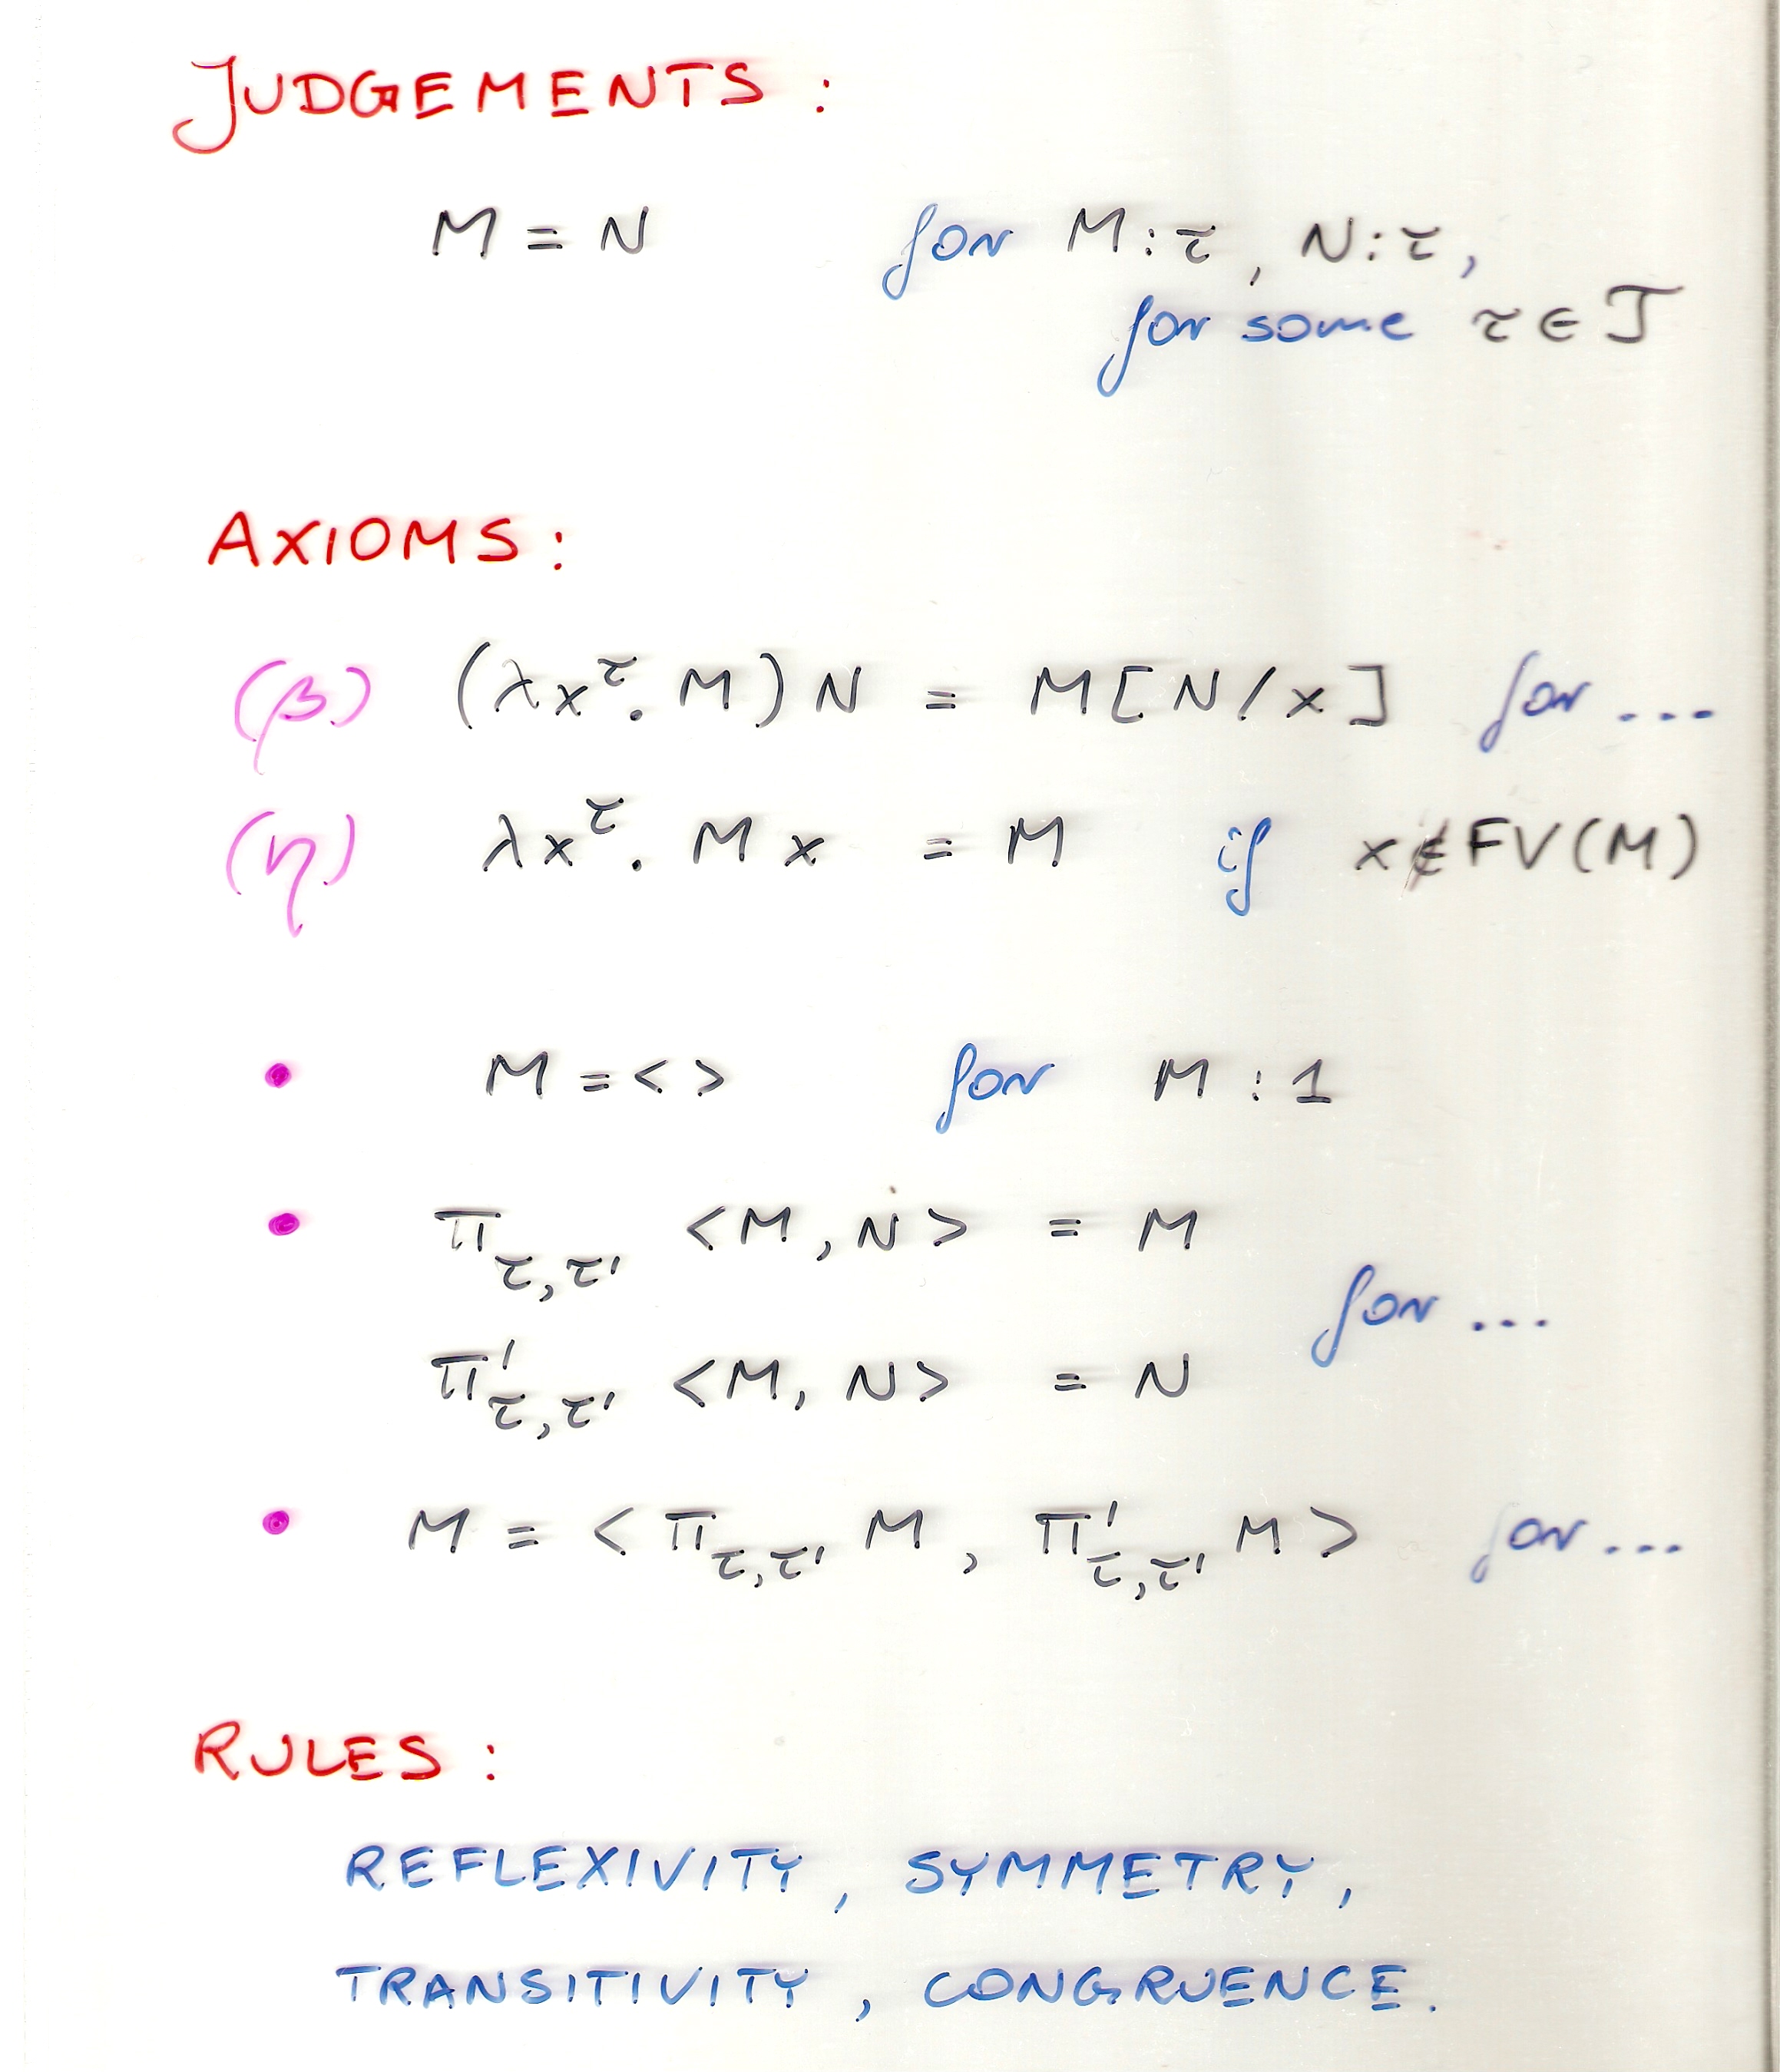 JUDGEMENTS :
M = N for M : τ , N : τ ,
for some τ ∈ T
AXIOMS :
(β) (λx^τ. M) N = M [ N / x ] for ...
(η) λx^τ. M x = M if x ∉ FV (M)
• M = < > for M : 1
• π_{τ,τ'} <M , N> = M
for ...
π'_{τ,τ'} <M, N> = N
• M = < π_{τ,τ'} M , π'_{τ,τ'} M > for ...
RULES :
REFLEXIVITY , SYMMETRY ,
TRANSITIVITY , CONGRUENCE.